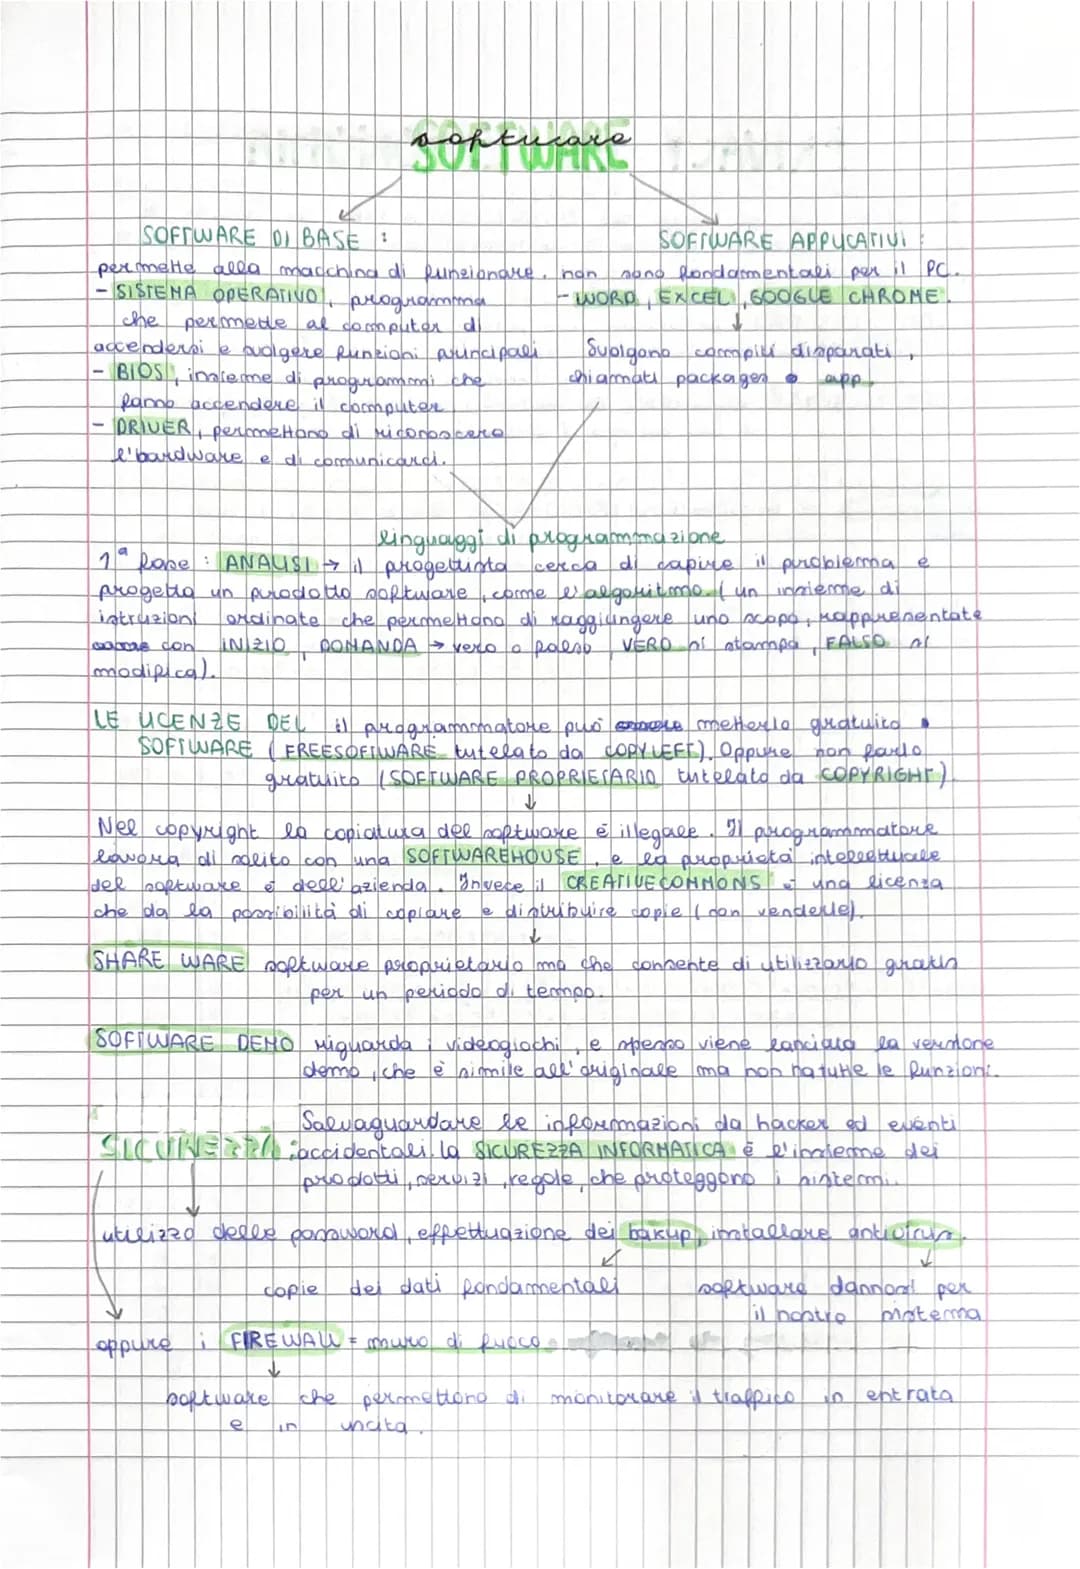 software
SOFTWARE
SOFTWARE DI BASE :
permette alla macchina di funzionare.
- SISTEMA OPERATIVO, programma
che permette al computer di
accendersi e svolgere funzioni principali
- BIOS, insieme di programmi che
fanno accendere il computer
- DRIVER, permettono di riconoscere
l'hardware e di comunicarci.
SOFTWARE APPLICATIVI :
non sono fondamentali per il PC.
- WORD, EXCEL, GOOGLE CHROME.
Svolgono compiti disparati,
chiamati packages o app.
linguaggi di programmazione
1ª fase : ANALISI → il progettista cerca di capire il problema e
progetta un prodotto software, come l'algoritmo. ( un insieme di
istruzioni ordinate che permettono di raggiungere uno scopo, rappresentate
con INIZIO, DOMANDA → vero o falso, VERO si stampa, FALSO si
modifica).
LE LICENZE DEL il programmatore può metterlo gratuito
SOFTWARE ( FREESOFTWARE tutelato da COPYLEFT). Oppure non farlo
gratuito (SOFTWARE PROPRIETARIO tutelato da COPYRIGHT)
Nel copyright la copiatura del software è illegale. Il programmatore
lavora di solito con una SOFTWAREHOUSE, e la proprietà intellettuale
del software è dell'azienda. Invece il CREATIVECOMMONS è una licenza
che da la possibilità di copiare e distribuire copie ( non venderle).
SHARE WARE software proprietario ma che consente di utilizzarlo gratis
per un periodo di tempo.
SOFTWARE DEMO riguarda i videogiochi, e spesso viene lanciata la versione
demo, che è simile all'originale ma non ha tutte le funzioni.
Salvaguardare le informazioni da hacker ed eventi
SICUREZZA : accidentali. la SICUREZZA INFORMATICA è l'insieme dei
prodotti, servizi, regole, che proteggono i sistemi.
utilizzo delle password, effettuazione dei bakup, installare antivirus.
copie dei dati fondamentali
software dannosi per
il nostro sistema
oppure i FIREWALL = muro di fuoco
software che permettono di monitorare il traffico in entrata
e in uscita.